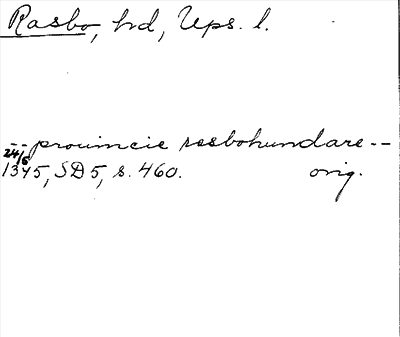 Rasbo, hd, Ups. l.
-- prouincie rasbohundare --
24/5
1345, SD 5, s. 460. orig.